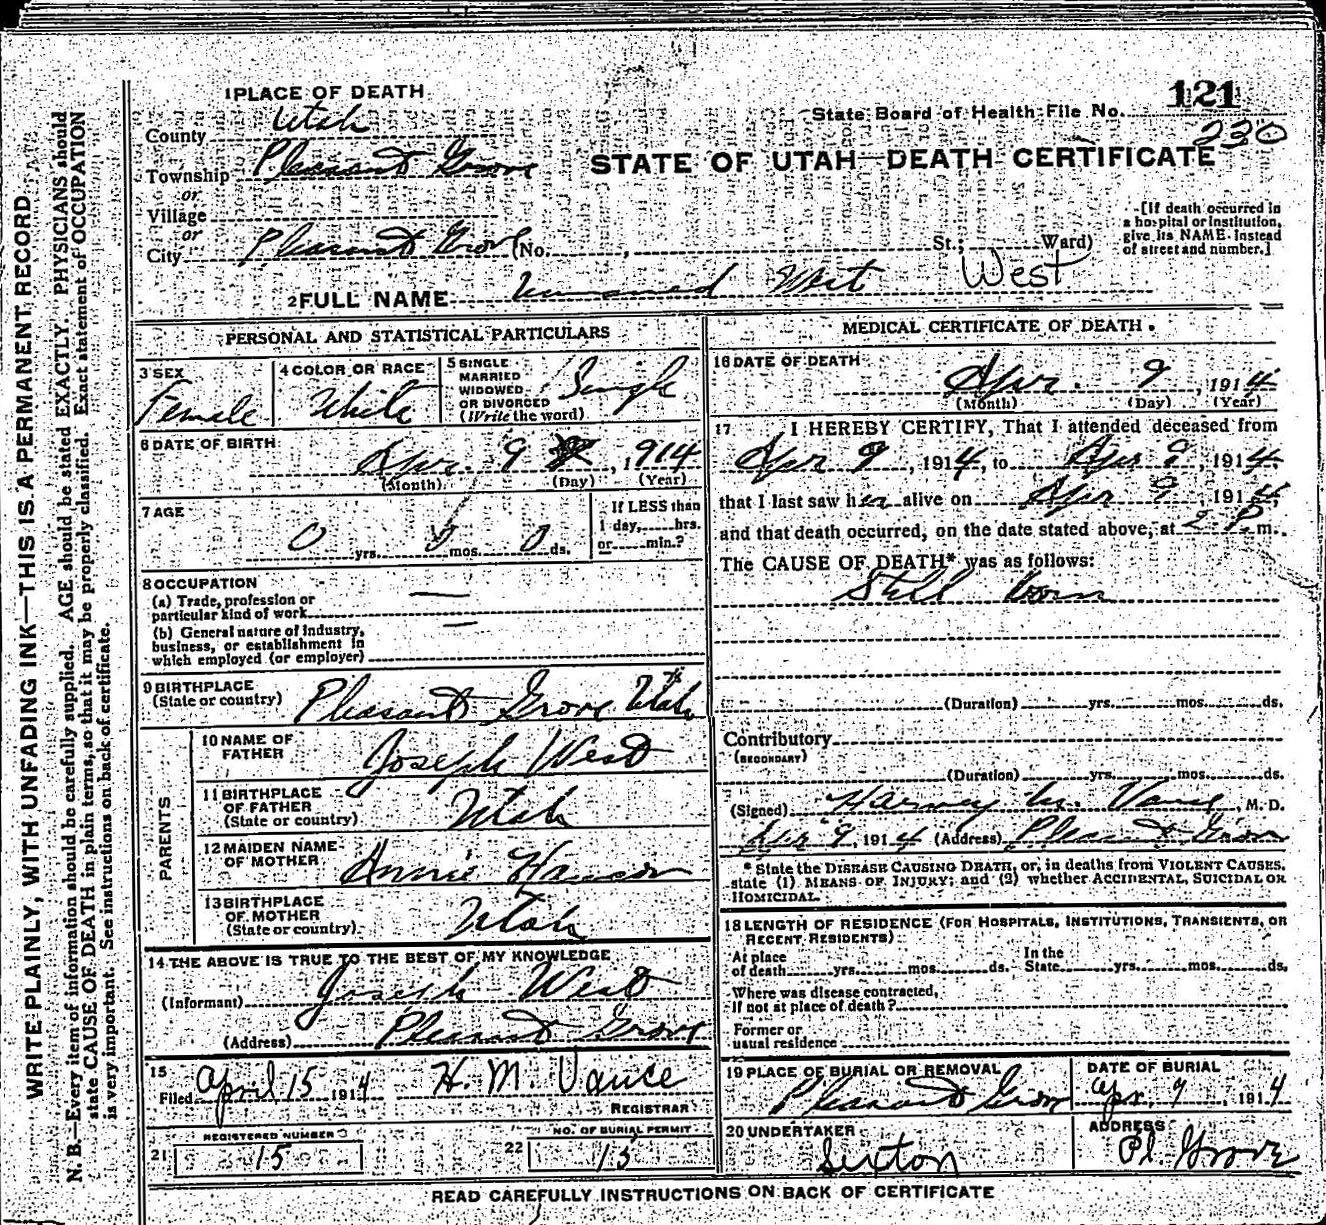 WRITE PLAINLY, WITH UNFADING INK—THIS IS A PERMANENT RECORD
N. B.—Every item of information should be carefully supplied. AGE should be stated EXACTLY. PHYSICIANS should
state CAUSE OF DEATH in plain terms, so that it may be properly classified. Exact statement of OCCUPATION
is very important. See instructions on back of certificate.
1 PLACE OF DEATH
County Utah
Township Pleasant Grove
or
Village
or
City Pleasant Grove (No. , St.; Ward)
121
State Board of Health File No.
230
STATE OF UTAH—DEATH CERTIFICATE
[If death occurred in
a hospital or institution,
give its NAME instead
of street and number.]
2 FULL NAME Unnamed West West
PERSONAL AND STATISTICAL PARTICULARS
3 SEX
Female
4 COLOR OR RACE
White
5 SINGLE
MARRIED
WIDOWED
OR DIVORCED
(Write the word)
Single
6 DATE OF BIRTH
Apr. 9, 1914
(Month) (Day) (Year)
7 AGE
0 yrs. 0 mos. 0 ds.
If LESS than
1 day, hrs.
or min.?
8 OCCUPATION
(a) Trade, profession or
particular kind of work —
(b) General nature of industry,
business, or establishment in
which employed (or employer) —
9 BIRTHPLACE
(State or country) Pleasant Grove Utah
PARENTS
10 NAME OF
FATHER Joseph West
11 BIRTHPLACE
OF FATHER
(State or country) Utah
12 MAIDEN NAME
OF MOTHER Annie
13 BIRTHPLACE
OF MOTHER
(State or country) Utah
14 THE ABOVE IS TRUE TO THE BEST OF MY KNOWLEDGE
(Informant) Joseph West
(Address) Pleasant Grove
15
Filed April 15 1914 H. M. Vance
REGISTRAR
21 REGISTERED NUMBER
15
22 NO. OF BURIAL PERMIT
15
MEDICAL CERTIFICATE OF DEATH.
16 DATE OF DEATH
Apr. 9, 1914
(Month) (Day) (Year)
17 I HEREBY CERTIFY, That I attended deceased from
Apr 9, 1914, to Apr 9, 1914,
that I last saw her alive on Apr 9, 1914,
and that death occurred, on the date stated above, at 2 P. m.
The CAUSE OF DEATH* was as follows:
Still born
(Duration) yrs. mos. ds.
Contributory
(SECONDARY)
(Duration) yrs. mos. ds.
(Signed) Harvey M. Vance, M. D.
Apr 9, 1914 (Address) Pleasant Grove
* State the DISEASE CAUSING DEATH, or, in deaths from VIOLENT CAUSES,
state (1) MEANS OF INJURY; and (2) whether ACCIDENTAL, SUICIDAL OR
HOMICIDAL.
18 LENGTH OF RESIDENCE (FOR HOSPITALS, INSTITUTIONS, TRANSIENTS, OR
RECENT RESIDENTS)
At place
of death yrs. mos. ds. In the
State yrs. mos. ds.
Where was disease contracted,
if not at place of death?
Former or
usual residence
19 PLACE OF BURIAL OR REMOVAL
Pleasant Grove
DATE OF BURIAL
Apr. 9, 1914
20 UNDERTAKER
Sexton
ADDRESS
Pl. Grove
READ CAREFULLY INSTRUCTIONS ON BACK OF CERTIFICATE